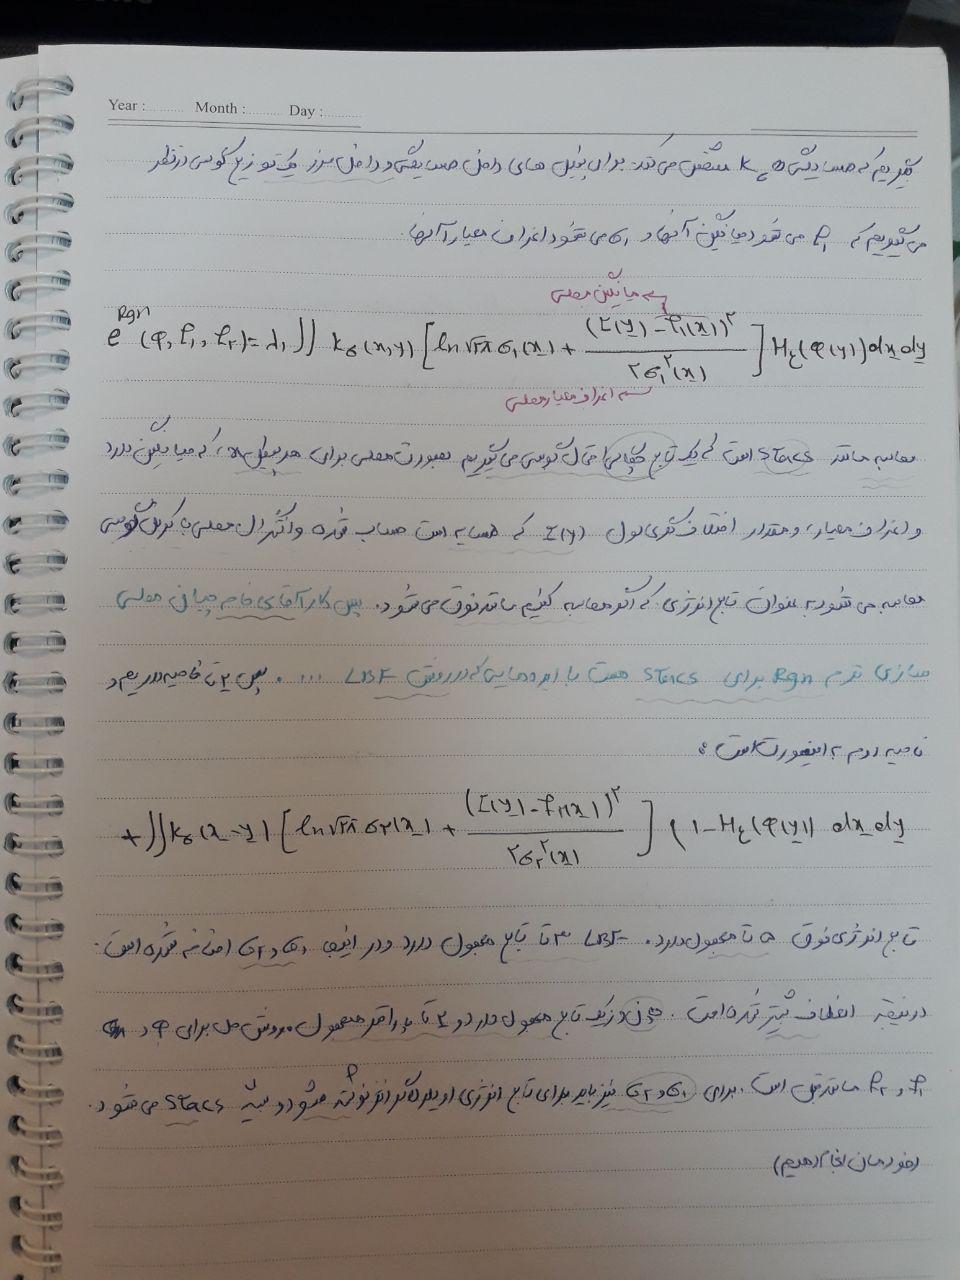 Year : Month : Day :
بگیریم که همسایگی مشخص می کند. برای پیکسل های داخل همسایگی و داخل مرز یک توزیع گوسی در نظر
می گیریم که f₁ می شود میانگین آنها و σ₁ می شود انحراف معیار آنها.
میانگین محلی
e^Rgn (φ, f₁, f₂) = λ₁ ∬ kσ(x,y) [ln √۲π σ₁(x) + (I(y) - f₁(x))^۲ / ۲σ₁^۲(x)] Hε(φ(y)) dx dy
انحراف معیار محلی
محاسبه مانند stacs است که یک تابع چگالی احتمال گوسی می گیریم بصورت محلی برای هر پیکسل x، که میانگین دارد
و انحراف معیار، و مقدار اختلاف شدت I(y) که همسایه است حساب شده و انتگرال محلی با کرنل گوسی
محاسبه می شود به عنوان تابع انرژی که اگر محاسبه کنیم مانند فوق می شود. پس کار آقای همان محلی
سازی ترم Rgn برای stacs هست با ایده هایی که در روش LBF .... پس ۲ تا ناحیه داریم و
ناحیه دوم به اینصورت است:
+ ∬ kσ(x-y) [ln √۲π σ۲(x) + (I(y) - f۲(x))^۲ / ۲σ۲^۲(x)] (1 - Hε(φ(y)) dx dy
تابع انرژی فوق ۵ تا مجهول دارد. LBF ۳ تا تابع مجهول دارد و در اینجا σ۱ و σ۲ اضافه شده است.
در نتیجه انعطاف بیشتر شده است. چون یک تابع مجهول دارد و ۴ تا پارامتر مجهول، روش حل برای φ و
f₁ و f₂ مانند قبل است. برای σ۱ و σ۲ نیز باید برای تابع انرژی اویلر لاگرانژ نوشته شود و شبیه stacs می شود.
(خودمان انجام دهیم)